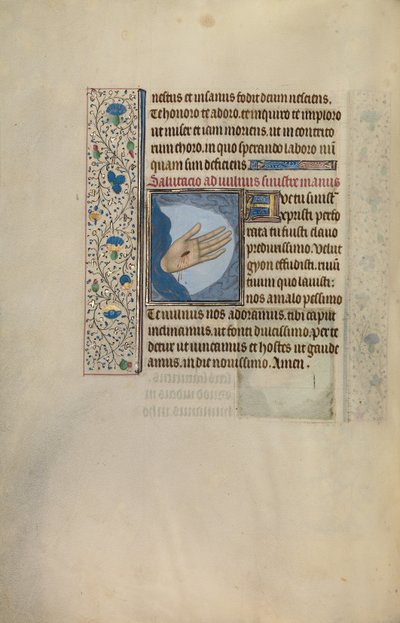 nestus et insanus fodit deum nesciens.
Te honoro te adoro. te inquiro te imploro
ut miser et iam moriens. ut in contrico
rum choro. in quo sperando laboro nū
quam sim deficiens
Salutacio ad vulnus sinistre manus
Ave tu sinist
xpristi perfo
rata tu fuisti clavo
predurissimo. Velut
gyon effudisti. rivū
vivum quo lavisti:
nos amalo pessimo
Te vulnus nos adoramus. tibi caput
inclinamus. ut fonti divicissimo. per te
detur ut vincamus et hostes ut gaude
amus. in die novissimo. Amen.